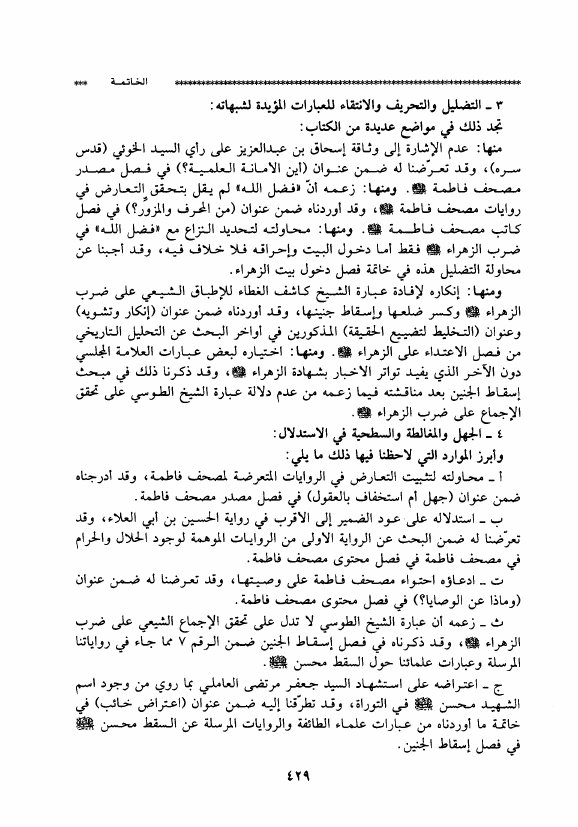 *** الخاتمـة ***
٣ ـ التضليل والتحريف والانتقاء للعبارات المؤيدة لشبهاته:
تجد ذلك في مواضع عديدة من الكتاب:
منها: عدم الإشارة إلى وثـاقة إسحاق بن عبدالعزيز على رأي السيـد الخوئي (قدس
سره)، وقـد تعـرّضنا له ضمـن عنـوان (أين الامـانة العلميـة؟) في فصـل مصـدر
مصحـف فـاطمـة ﷺ. ومنهـا: زعمـه أنّ «فضـل اللـه» لم يقـل بتحـقق التعـارض في
روايات مصحف فـاطمة ﷺ، وقد أوردناه ضمن عنوان (من المحرف والمزوّر؟) في فصل
كـاتب مصحـف فـاطـمـة ﷺ. ومنهـا: محـاولته لتحـديد النـزاع مع «فضـل اللـه» في
ضـرب الزهـراء ﷺ فـقط أمـا دخـول البيت وإحـراقـه فـلا خـلاف فيـه، وقـد أجبنا عن
محاولة التضليل هذه في خاتمة فصل دخول بيت الزهراء.
ومنها: إنكاره لإفـادة عبـارة الشيـخ كـاشف الغطاء للإطبـاق الشيـعي على ضـرب
الزهراء ﷺ وكسر ضلعهـا وإسقـاط جنينهـا، وقـد أوردناه ضمن عنوان (إنكار وتشويه)
وعنوان (التخليط لتضييع الحقيقة) المذكورين في أواخر البحث عن التحليل التاريخي
من فـصل الاعتـداء على الزهـراء ﷺ. ومنهـا: اختيـاره لبعض عبـارات العلامـة المجلسي
دون الآخـر الذي يفيـد تواتر الاخبـار بشهـادة الزهراء ﷺ، وقـد ذكـرنا ذلك في مبحـث
إسقـاط الجنين بعد مناقشته فيما زعمـه من عدم دلالة عبارة الشيخ الطوسي على تحقق
الإجماع على ضرب الزهراء ﷺ.
٤ ـ الجهل والمغالطة والسطحية في الاستدلال:
وأبرز الموارد التي لاحظنا فيها ذلك ما يلي:
أ ـ محاولته لتثبيت التعـارض في الروايات المتعرضـة لمصحف فاطمـة، وقد أدرجناه
ضمن عنوان (جهل أم استخفاف بالعقول) في فصل مصدر مصحف فاطمة.
ب ـ استدلاله على عـود الضميـر إلى الاقرب في رواية الحسين بن أبي العلاء، وقد
تعرّضنا له ضمن البحث عن الرواية الاولى من الروايـات الموهمة لوجود الحلال والحرام
في مصحف فاطمة في فصل محتوى مصحف فاطمة.
ت ـ ادعـاؤه احتـواء مصحـف فـاطمة على وصيتـها، وقد تعـرضنا له ضمـن عنوان
(وماذا عن الوصايا؟) في فصل محتوى مصحف فاطمة.
ث ـ زعمه أن عبارة الشيخ الطوسي لا تدل على تحقق الإجماع الشيعي على ضرب
الزهراء ﷺ، وقـد ذكـرناه في فصـل إسقـاط الجنين ضمـن الرقـم ٧ مما جـاء في رواياتنا
المرسلة وعبارات علمائنا حول السقط محسن ﷺ.
ج ـ اعتـراضه على استشهـاد السيد جـعفر مرتضى العاملي بما روي من وجود اسم
الشهيـد مـحسن ﷺ في التوراة، وقـد تطرّقنا إليـه ضمـن عنوان (اعتراض خـائب) في
خاتمـة ما أوردناه من عبـارات علمـاء الطائفة والروايات المرسلة عن السقط محـسن ﷺ
في فصل إسقاط الجنين.
٤٢٩